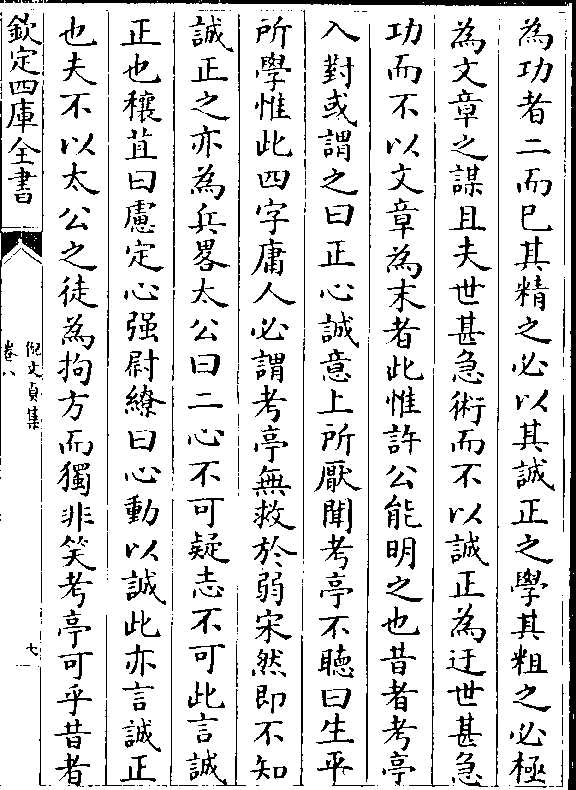 為功者二而已其精之必以其誠正之學其粗之必極
為文章之謀且夫世甚急術而不以誠正為迂世甚急
功而不以文章為末者此惟許公能明之也昔者考亭
入對或謂之曰正心誠意上所厭聞考亭不聽曰生平
所學惟此四字庸人必謂考亭無救於弱宋然即不知
誠正之亦為兵畧太公曰二心不可疑志不可此言誠
正也穰苴曰慮定心强尉繚曰心動以誠此亦言誠正
也夫不以太公之徒為拘方而獨非笑考亭可乎昔者
欽定四庫全書
倪文貞集
卷八
七